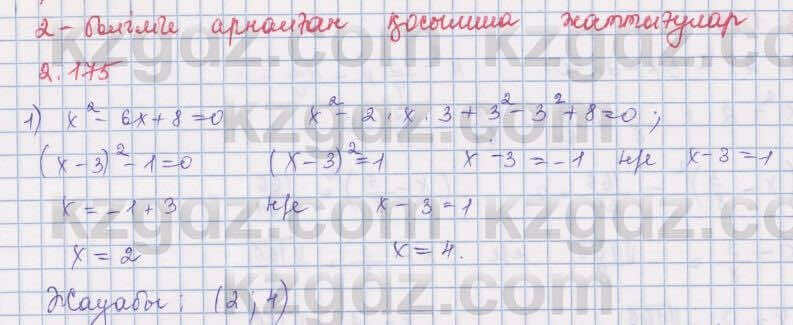 2-бөлімге арналған қосымша жаттығулар
2.175
1) x² - 6x + 8 = 0    x² - 2·x·3 + 3² - 3² + 8 = 0;
(x - 3)² - 1 = 0    (x - 3)² = 1    x - 3 = -1 н/е x - 3 = 1
x = -1 + 3 н/е x - 3 = 1
x = 2    x = 4.
Жауабы: (2; 4)
kzgdz.com